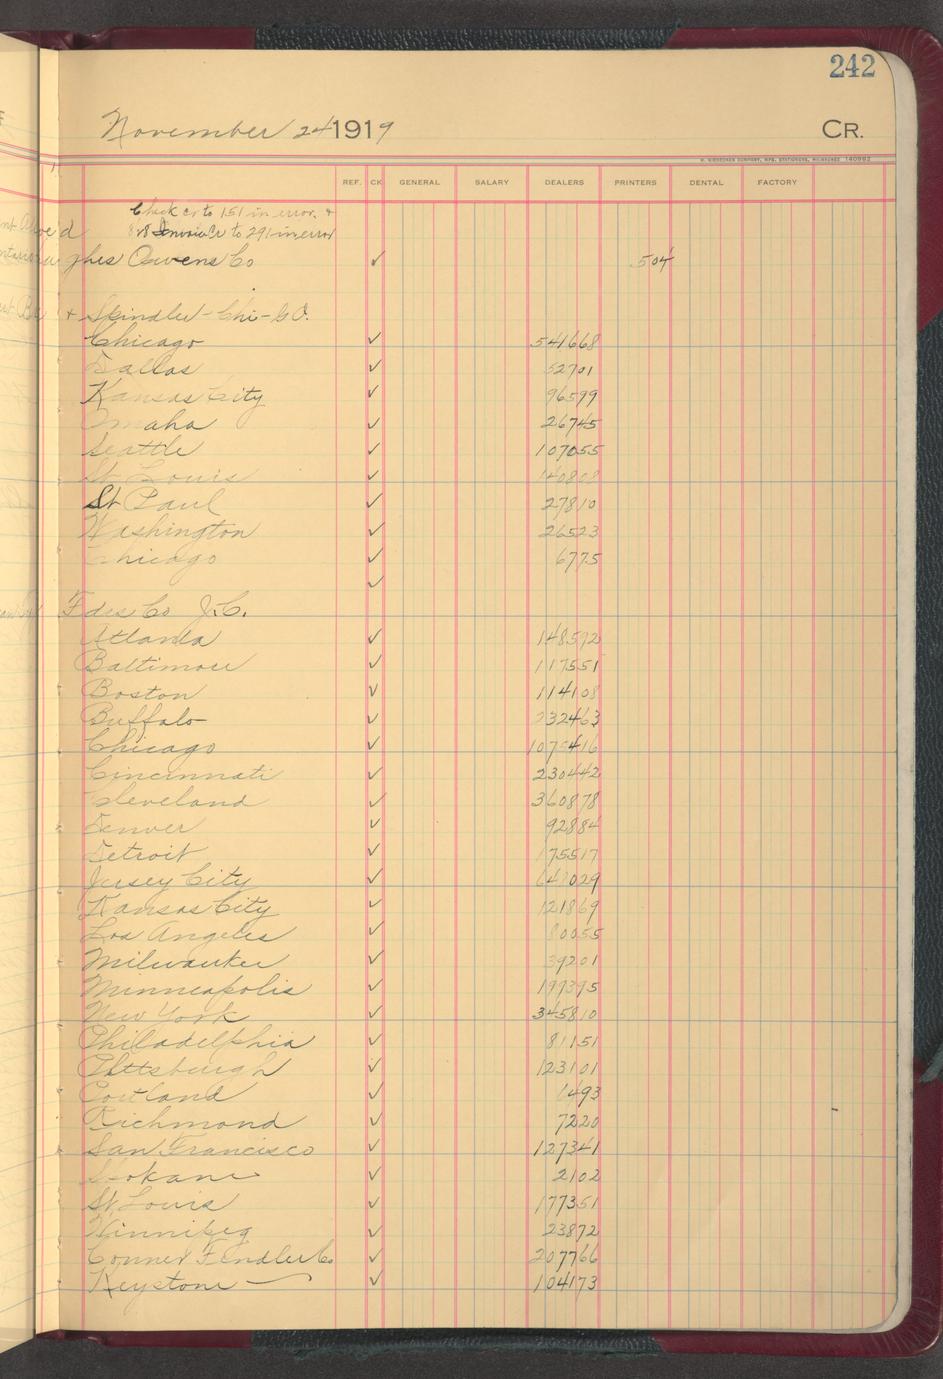 242
November 24 1919 CR.
REF. CK GENERAL SALARY DEALERS PRINTERS DENTAL FACTORY
Check Cr to 151 in error. +
Cr to 291 in error
Owens Co ✓ 504
+ Spindler - Chi - G.O.
Chicago ✓ 541668
Dallas ✓ 52701
Kansas City ✓ 96599
Omaha ✓ 26745
Seattle ✓ 107055
St Louis ✓ 140808
St Paul ✓ 27810
Washington ✓ 26523
Chicago ✓ 6775
✓
Co J.C.
Atlanta ✓ 148592
Baltimore ✓ 117551
Boston ✓ 114108
Buffalo ✓ 232463
Chicago ✓ 1075416
Cincinnati ✓ 230442
Cleveland ✓ 360878
Denver ✓ 92884
Detroit ✓ 175517
Jersey City ✓ 648029
Kansas City ✓ 121869
Los Angeles ✓ 80055
Milwaukee ✓ 39201
Minneapolis ✓ 197395
New York ✓ 345810
Philadelphia ✓ 81151
Pittsburgh ✓ 123101
Portland ✓ 1493
Richmond ✓ 7220
San Francisco ✓ 127341
Spokane ✓ 2102
St. Louis ✓ 177351
Winnipeg ✓ 23872
Conner Fendler Co ✓ 207766
Keystone ✓ 104173